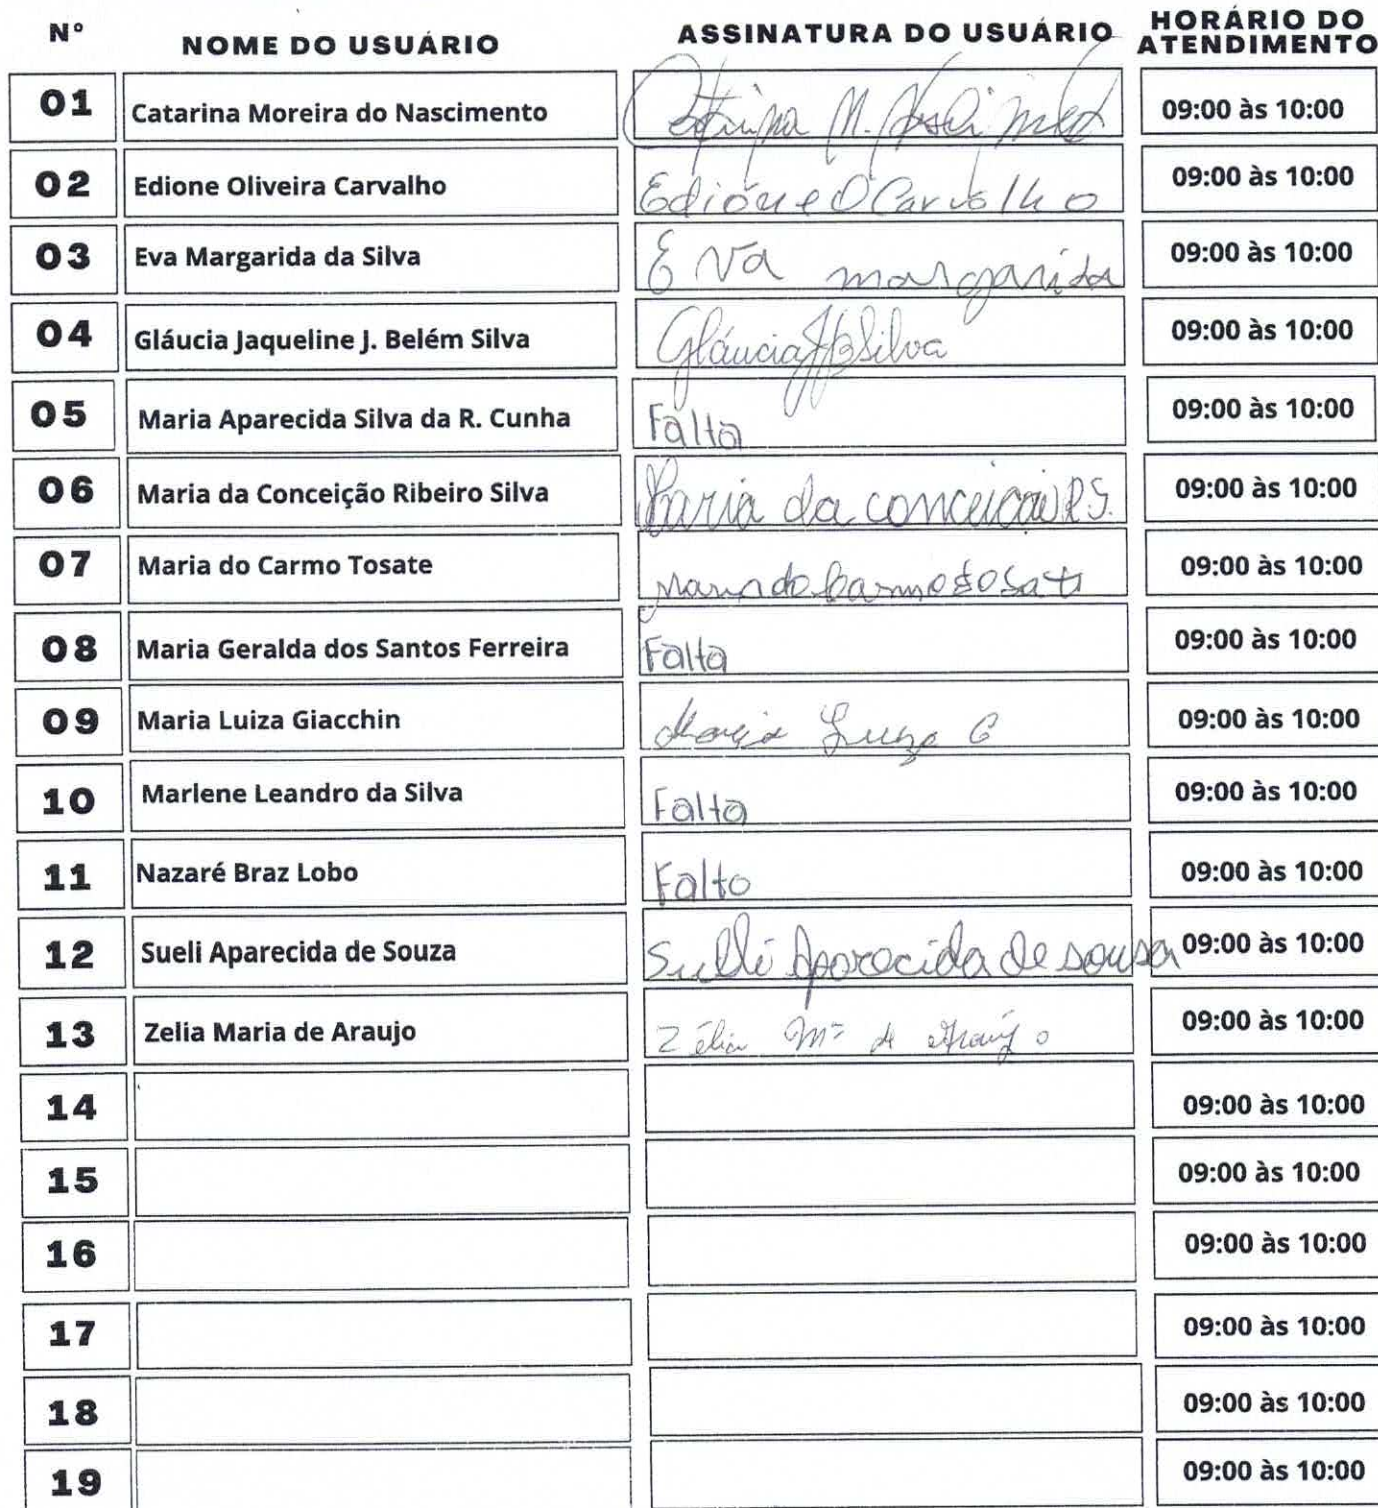 Nº NOME DO USUÁRIO ASSINATURA DO USUÁRIO HORÁRIO DO ATENDIMENTO
01 Catarina Moreira do Nascimento Catarina M. Nascimento 09:00 às 10:00
02 Edione Oliveira Carvalho Edione O Carvalho 09:00 às 10:00
03 Eva Margarida da Silva Eva margarida 09:00 às 10:00
04 Gláucia Jaqueline J. Belém Silva Gláucia JJB Silva 09:00 às 10:00
05 Maria Aparecida Silva da R. Cunha Falta 09:00 às 10:00
06 Maria da Conceição Ribeiro Silva Maria da conceicao R S. 09:00 às 10:00
07 Maria do Carmo Tosate Maria do Carmo tosati 09:00 às 10:00
08 Maria Geralda dos Santos Ferreira Falta 09:00 às 10:00
09 Maria Luiza Giacchin Maria Luiza G 09:00 às 10:00
10 Marlene Leandro da Silva Falta 09:00 às 10:00
11 Nazaré Braz Lobo Falta 09:00 às 10:00
12 Sueli Aparecida de Souza Sueli Aparecida de sousa 09:00 às 10:00
13 Zelia Maria de Araujo Zélia Mª de Araújo 09:00 às 10:00
14 09:00 às 10:00
15 09:00 às 10:00
16 09:00 às 10:00
17 09:00 às 10:00
18 09:00 às 10:00
19 09:00 às 10:00